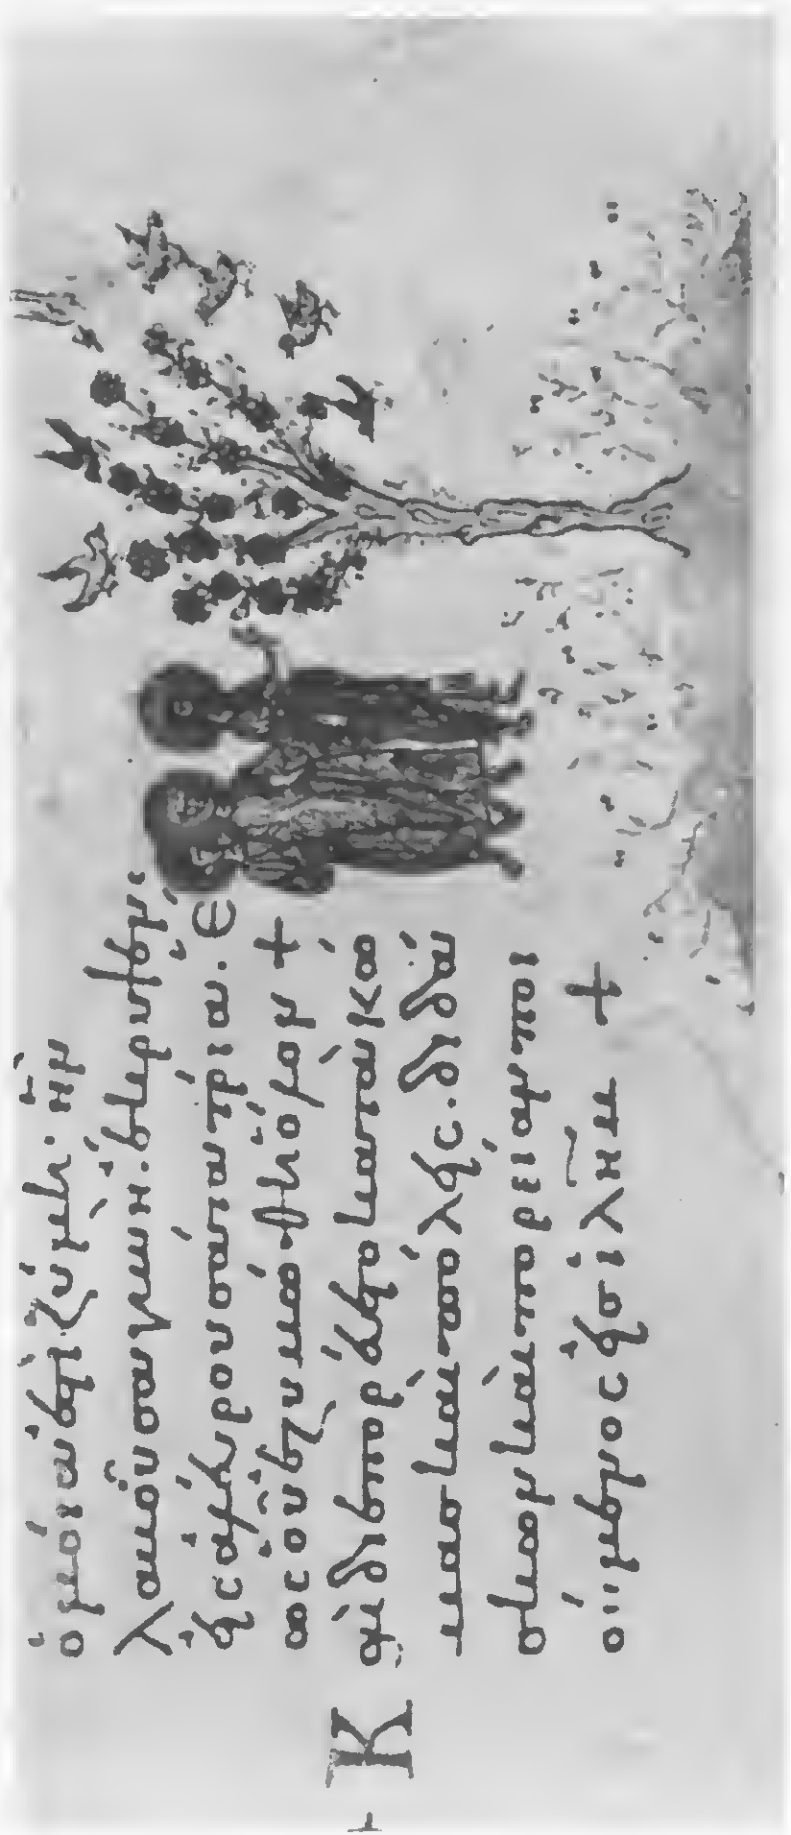 ὁμοία ἐστὶ ζύμη· ἣν
λαβοῦσα γυνὴ· ἔκρυψεν·
εἰς ἀλεύρου σάτα τρία· ἕ
ως οὗ ἐζυμώθη ὅλον +
+ Καὶ διεπορεύετο κατὰ κώ
μας καὶ πόλεις· διδά
σκων καὶ πορείαν ποι
ούμενος εἰς ἰλῆμ +